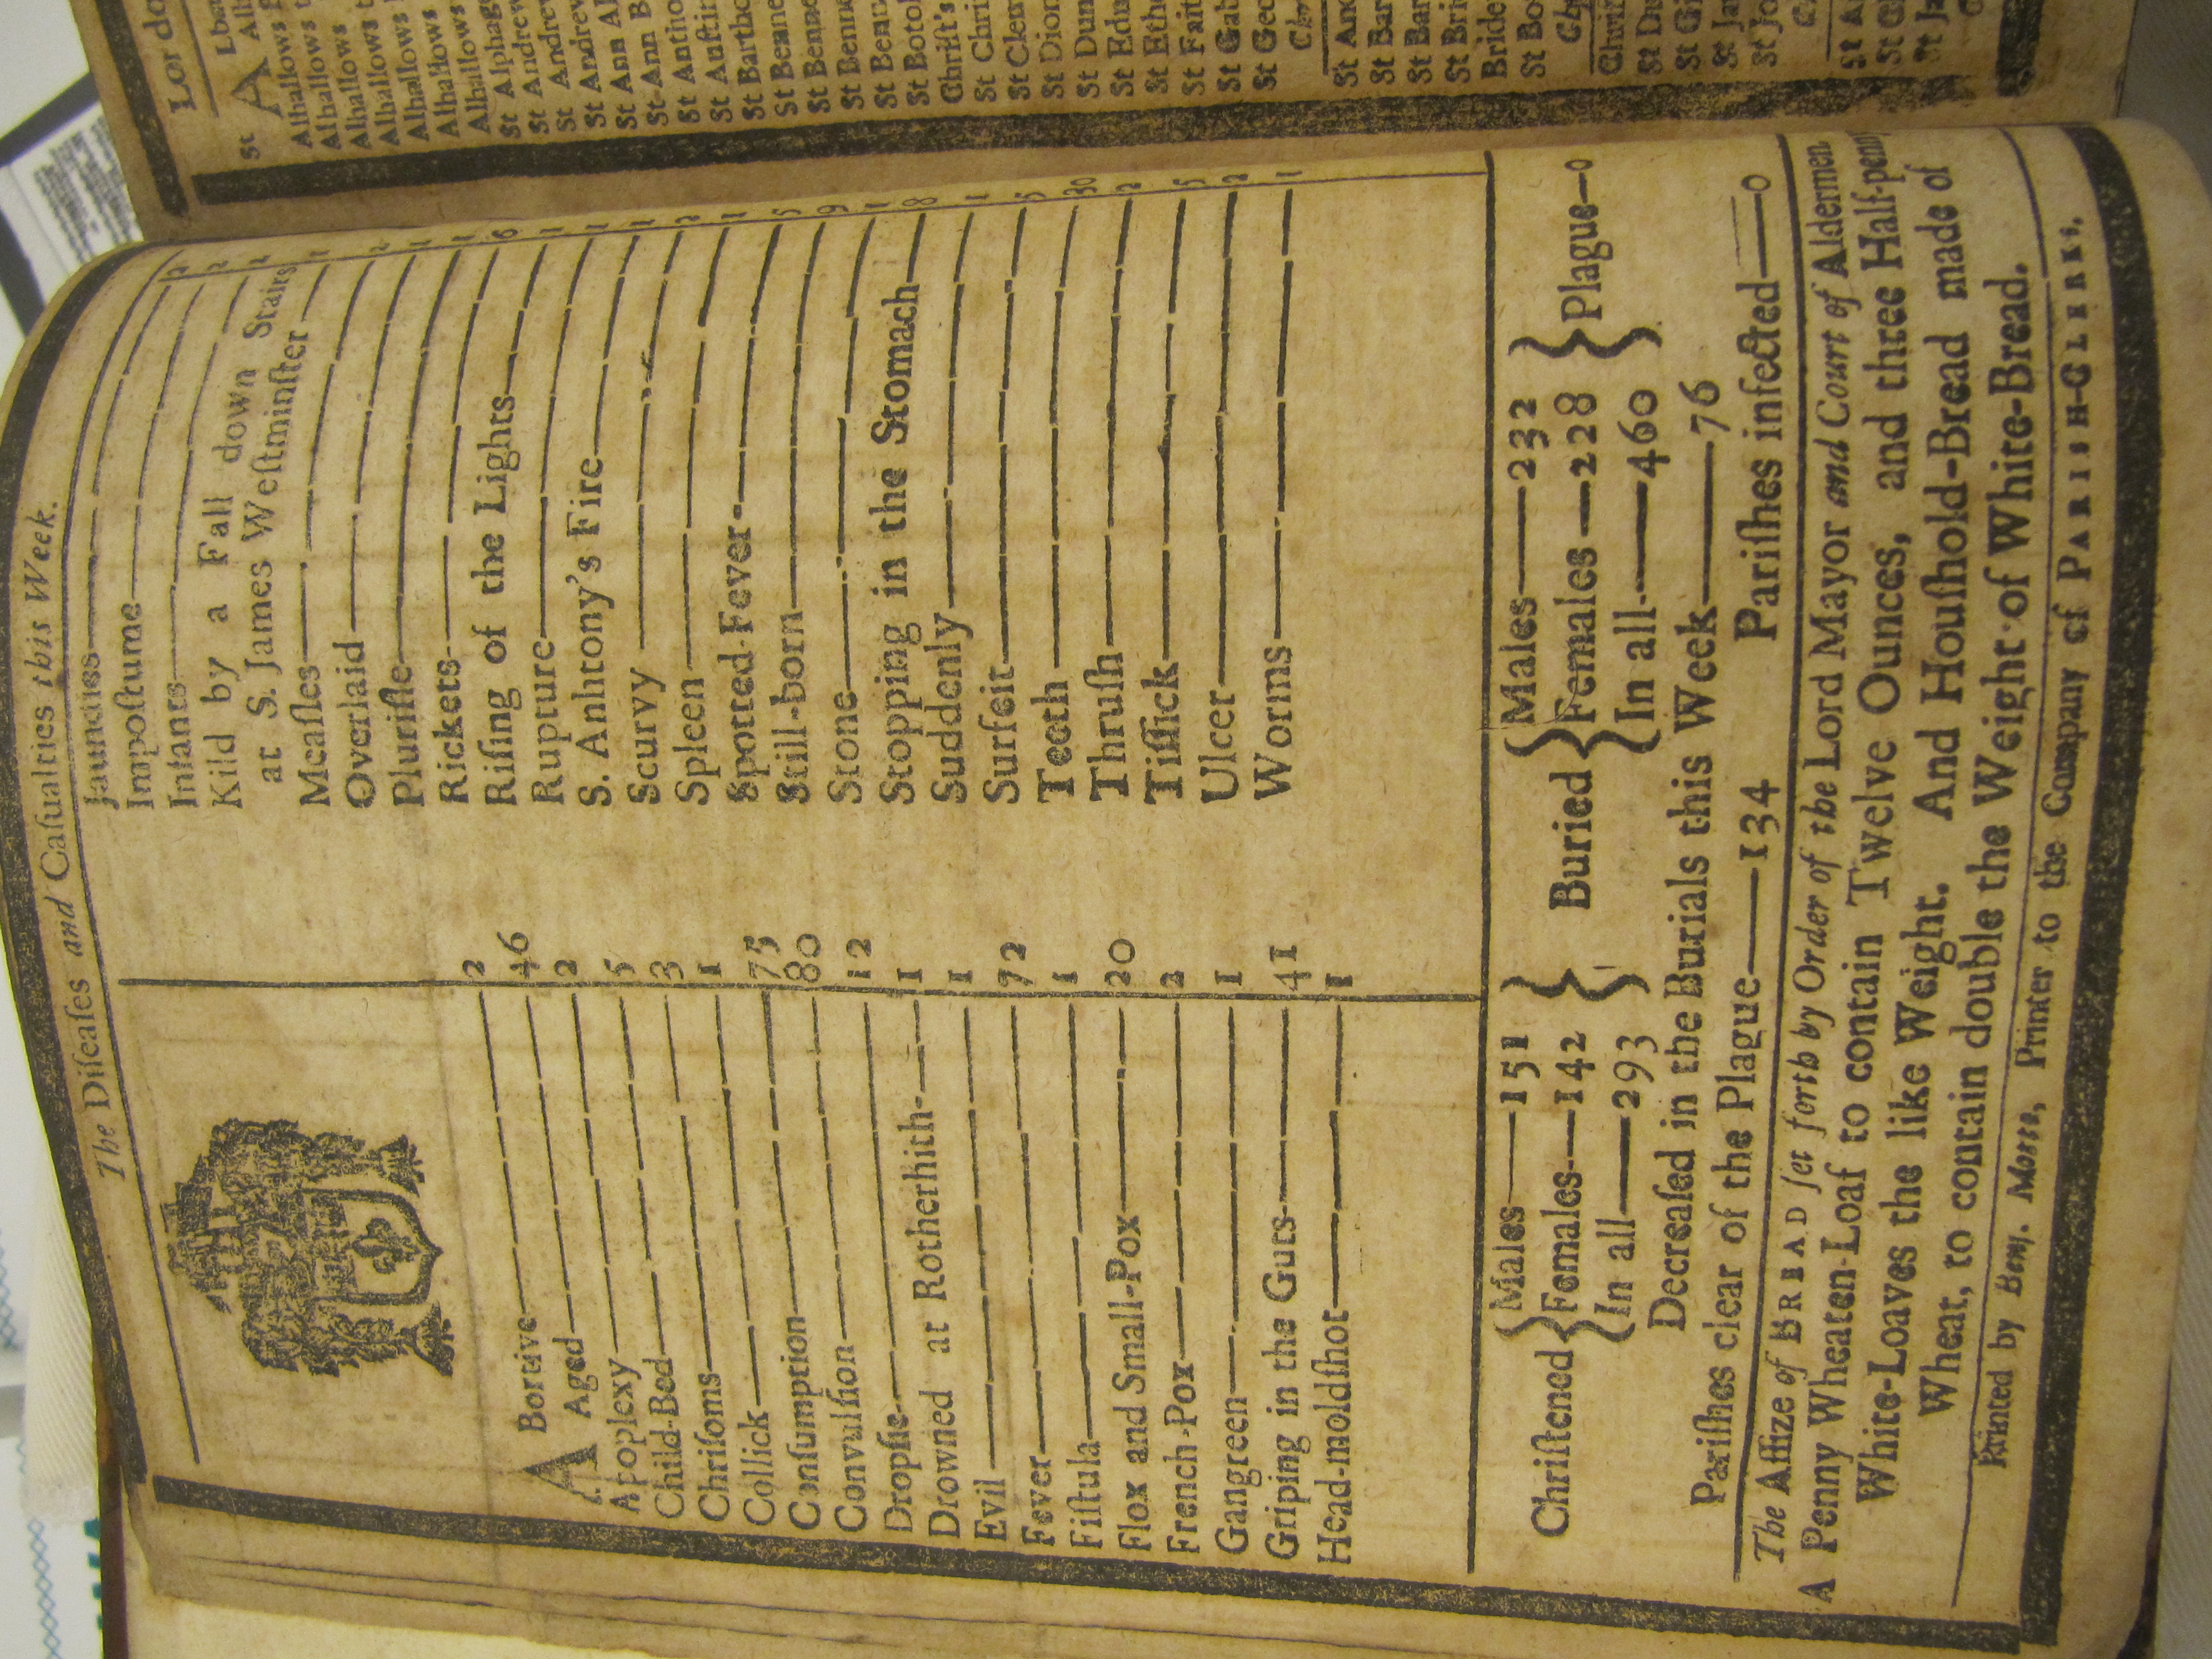 The Diſeaſes and Caſualties this Week.
ABortive 2
Aged 46
Apoplexy 2
Child-Bed 5
Chriſoms 3
Collick 1
Conſumption 75
Convulſion 80
Dropſie 12
Drowned at Rotherhith 1
Evil 1
Fever 72
Fiſtula 1
Flox and Small-Pox 20
French-Pox 2
Gangreen 1
Griping in the Guts 41
Head-moldſhot 1
Jaundies
Impoſtume 2
Infants 2
Kild by a Fall down Stairs
at S. James Weſtminſter 1
Meaſles 2
Overlaid 1
Pluriſie 1
Rickets 6
Riſing of the Lights 1
Rupture 1
S. Anhtony's Fire 1
Scurvy 2
Spleen 1
Spotted-Fever 5
Still-born 9
Stone 1
Stopping in the Stomach 8
Suddenly 1
Surfeit 5
Teeth 30
Thruſh 2
Tiſſick 5
Ulcer 2
Worms 1
Chriſtened { Males 151 Females 142 In all 293 }
Buried { Males 232 Females 228 In all 460 } Plague 0
Decreaſed in the Burials this Week 76
Pariſhes clear of the Plague 134 Pariſhes infected 0
The Aſſize of BREAD ſet forth by Order of the Lord Mayor and Court of Aldermen
A Penny Wheaten-Loaf to contain Twelve Ounces, and three Half-penny
White-Loaves the like Weight. And Houſhold-Bread made of
Wheat, to contain double the Weight of White-Bread.
Printed by Benj. Motte, Printer to the Company of PARISH-CLERKS.
St A
Alhallows
Alhallows
Alhallows
Alhallows
Alhallows
Alhallows
Alhallows
St Alphag
St Andrew
St Andrew
St Andrew
St Ann
St Ann B
St Antho
St Auſtin
St Bartho
St Benne
St Benne
St Benne
St Benn
St Botol
Chriſt's
St Chri
St Clem
St Dion
St Dun
St Edu
St Ethe
St Fait
St Gab
St Geo
St And
St Bar
St Bar
St Bri
Bride
St Bo
Chriſ
St Du
St Gi
St Ja
St Jo